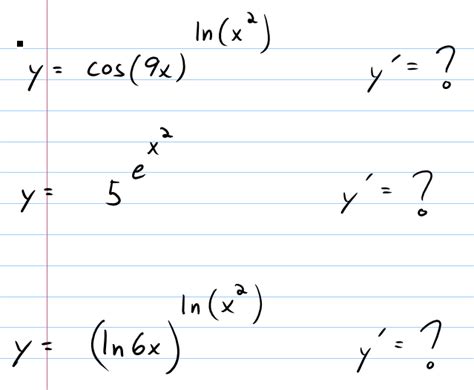 y = cos(9x)^ln(x²) y′ = ?
y = 5^e^x² y′ = ?
y = (ln6x)^ln(x²) y′ = ?